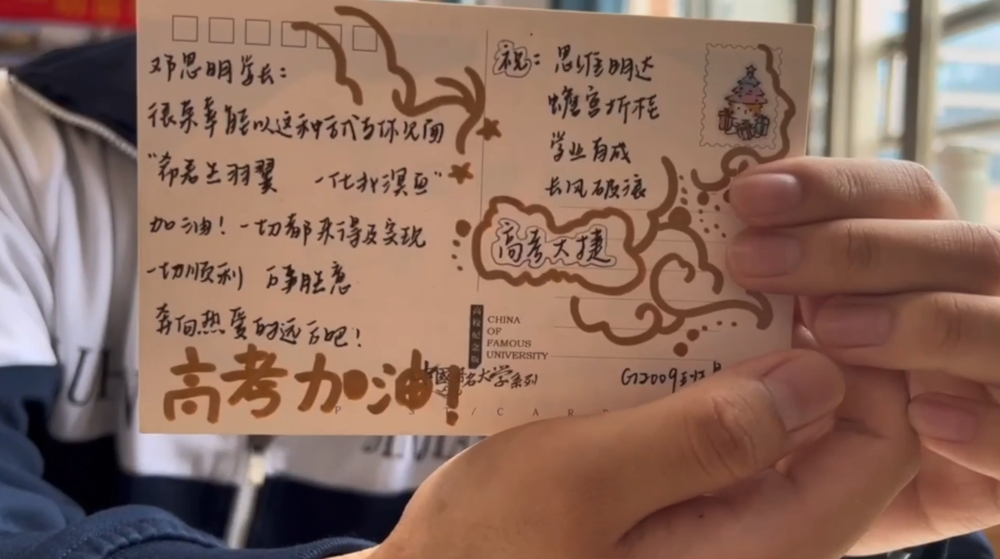 邓思明学长：
很荣幸能以这种方式与你见面
“希君生羽翼 一化北溟鱼”
加油！一切都来得及实现
一切顺利 万事胜意
奔向热爱的远方吧！
高考加油！
祝：思维明达
蟾宫折桂
学业有成
长风破浪
高考大捷
高校纪念版
CHINA
OF
FAMOUS
UNIVERSITY
中国著名大学系列
G12009班